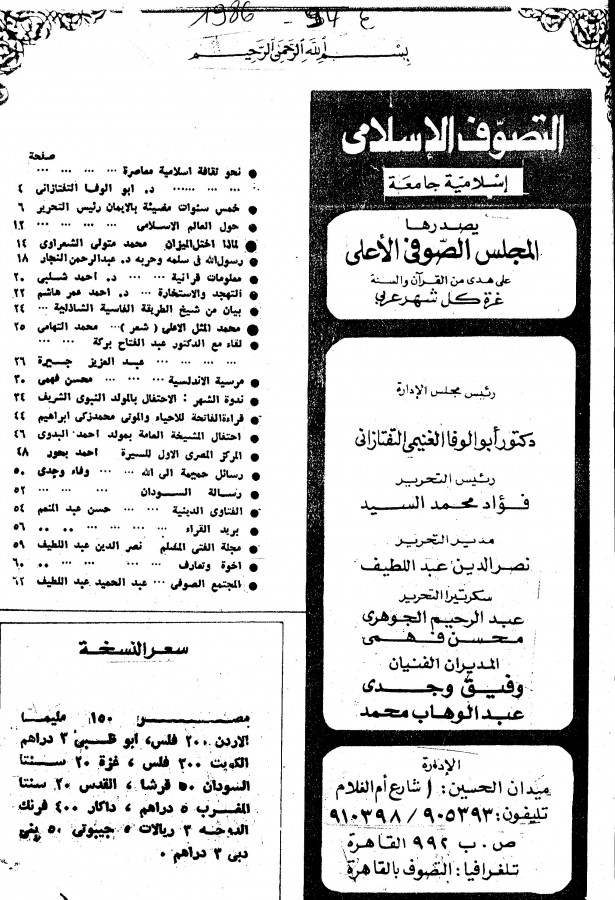 1986 - 94 ع
بسم الله الرحمن الرحيم
التصوف الإسلامى
إسلامية جامعة
يصدرها
المجلس الصوفى الأعلى
على هدى من القرآن والسنة
غرة كل شهر عربى
رئيس مجلس الإدارة
دكتور أبو الوفا الغنيمى التفتازانى
رئيس التحرير
فؤاد محمد السيد
مدير التحرير
نصر الدين عبد اللطيف
سكرتيرا التحرير
عبد الرحيم الجوهرى
محسن فهمى
المديران الفنيان
وفيق وجدى
عبد الوهاب محمد
الإدارة
ميدان الحسين: ١ شارع أم الغلام
تليفون: ٩٠٥٣٩٣ / ٩١٠٣٩٨
ص . ب ٩٩٢ القاهرة
تلغرافيا: التصوف بالقاهرة
صفحة
● نحو ثقافة اسلامية معاصرة ... ... ...
... ... ... د. ابو الوفا التفتازانى ٤
● خمس سنوات مضيئة بالايمان رئيس التحرير ٦
● حول العالم الاسلامى ... ... ... ... ١٢
● لماذا اختل الميزان محمد متولى الشعراوى ١٤
● رسول الله فى سلمه وحربه د. عبد الرحمن النجار ١٨
● معلومات قرانية ... ... د. أحمد شلبى ٢٠
● التهجد والاستخارة ... د. أحمد عمر هاشم ٢٢
● بيان من شيخ الطريقة الفاسية الشاذلية ... ٢٤
● محمد المثل الاعلى ( شعر ) ... محمد التهامى ٢٥
● لقاء مع الدكتور عبد الفتاح بركة ... ...
... ... ... عبد العزيز جبيرة ٢٦
● مرسية الاندلسية ... ... ... محسن فهمى ٣٠
● ندوة الشهر : الاحتفال بالمولد النبوى الشريف ٣٤
● قراءة الفاتحة للاحياء والموتى محمد زكى ابراهيم ٤٤
● احتفال المشيخة العامة بمولد أحمد البدوى ٤٦
● المركز المصرى الاول للسيرة أحمد بحور ٤٨
● رسائل حميمة الى الله ... ... وفاء وجدى ٥٠
● رسالة السودان ... ... ... ٥٢
● الفتاوى الدينية ... ... حسن عبد المنعم ٥٤
● بريد القراء ... ... ... ... ٥٦
● مجلة الفتى المسلم نصر الدين عبد اللطيف ٥٩
● اخوة وتعارف ... ... ... ... ٦٠
● المجتمع الصوفى ... عبد الحميد عبد اللطيف ٦٢
سعر النسخة
مصر ١٥٠ مليما
الاردن ٢٠٠ فلس، ابو ظبى ٣ دراهم
الكويت ٢٠٠ فلس ، غزة ٢٠ سنتا
السودان ٥٠ قرشا ، القدس ٢٠ سنتا
المغرب ٥ دراهم ، داكار ٤٠٠ فرنك
الدوحه ٣ ريالات ، جيبوتى ٥٠ بنى
دبى ٣ دراهم .